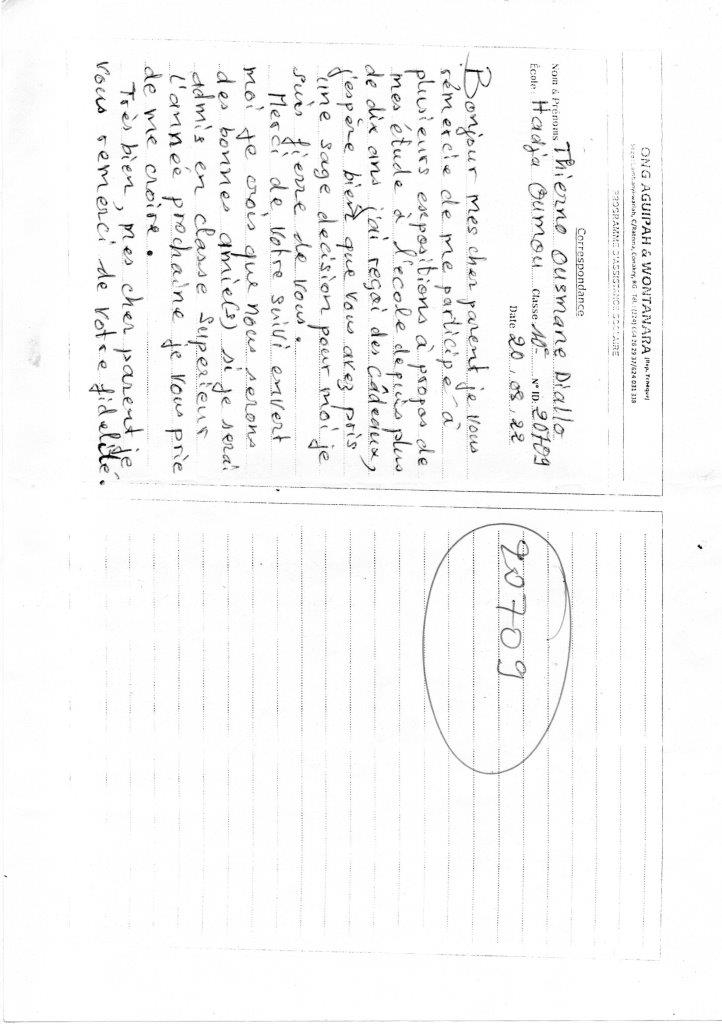 ONG AGUIPAH & WONTANARA (Rep. Trinque)
PROGRAMME D'ASSISTANCE SCOLAIRE
Correspondance
Nom & Prénoms Thierno Ousmane Diallo
École: Hadja Oumou Classe 10e N° ID: 20709
Date 20.08.22
Bonjour mes cher parent je vous
rémercie de me participé à
plusieurs expositions à propos de
mes étude à l'école depuis plus
de dix ans j'ai reçoi des câdeaux,
j'espère bien que vous avez pris
une sage decision pour moi je
suis fierre de vous.
Merci de votre suivi envert
moi je crois que nous serons
des bonnes amie(s) si je serai
admis en classe Superieur
l'année prochaine je vous prie
de me croire.
Très bien, mes cher parent je
vous remerci de votre fidelité.
20709